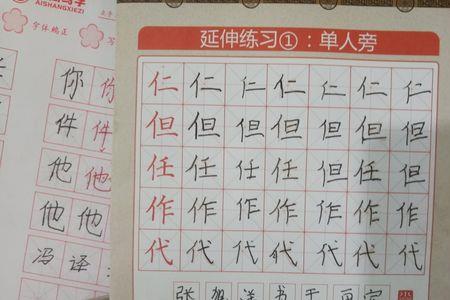 AISHANGXIEZI
字体端正
写
你 你
件 件
他 他
他 他
冯 译
延伸练习①：单人旁
仁 仁 仁 仁 仁 仁 仁
但 但 但 但 但 但 但
任 任 任 任 但 任 但
作 作 作 作 作 作 作
代 代 代 代 代 代 代
张 书